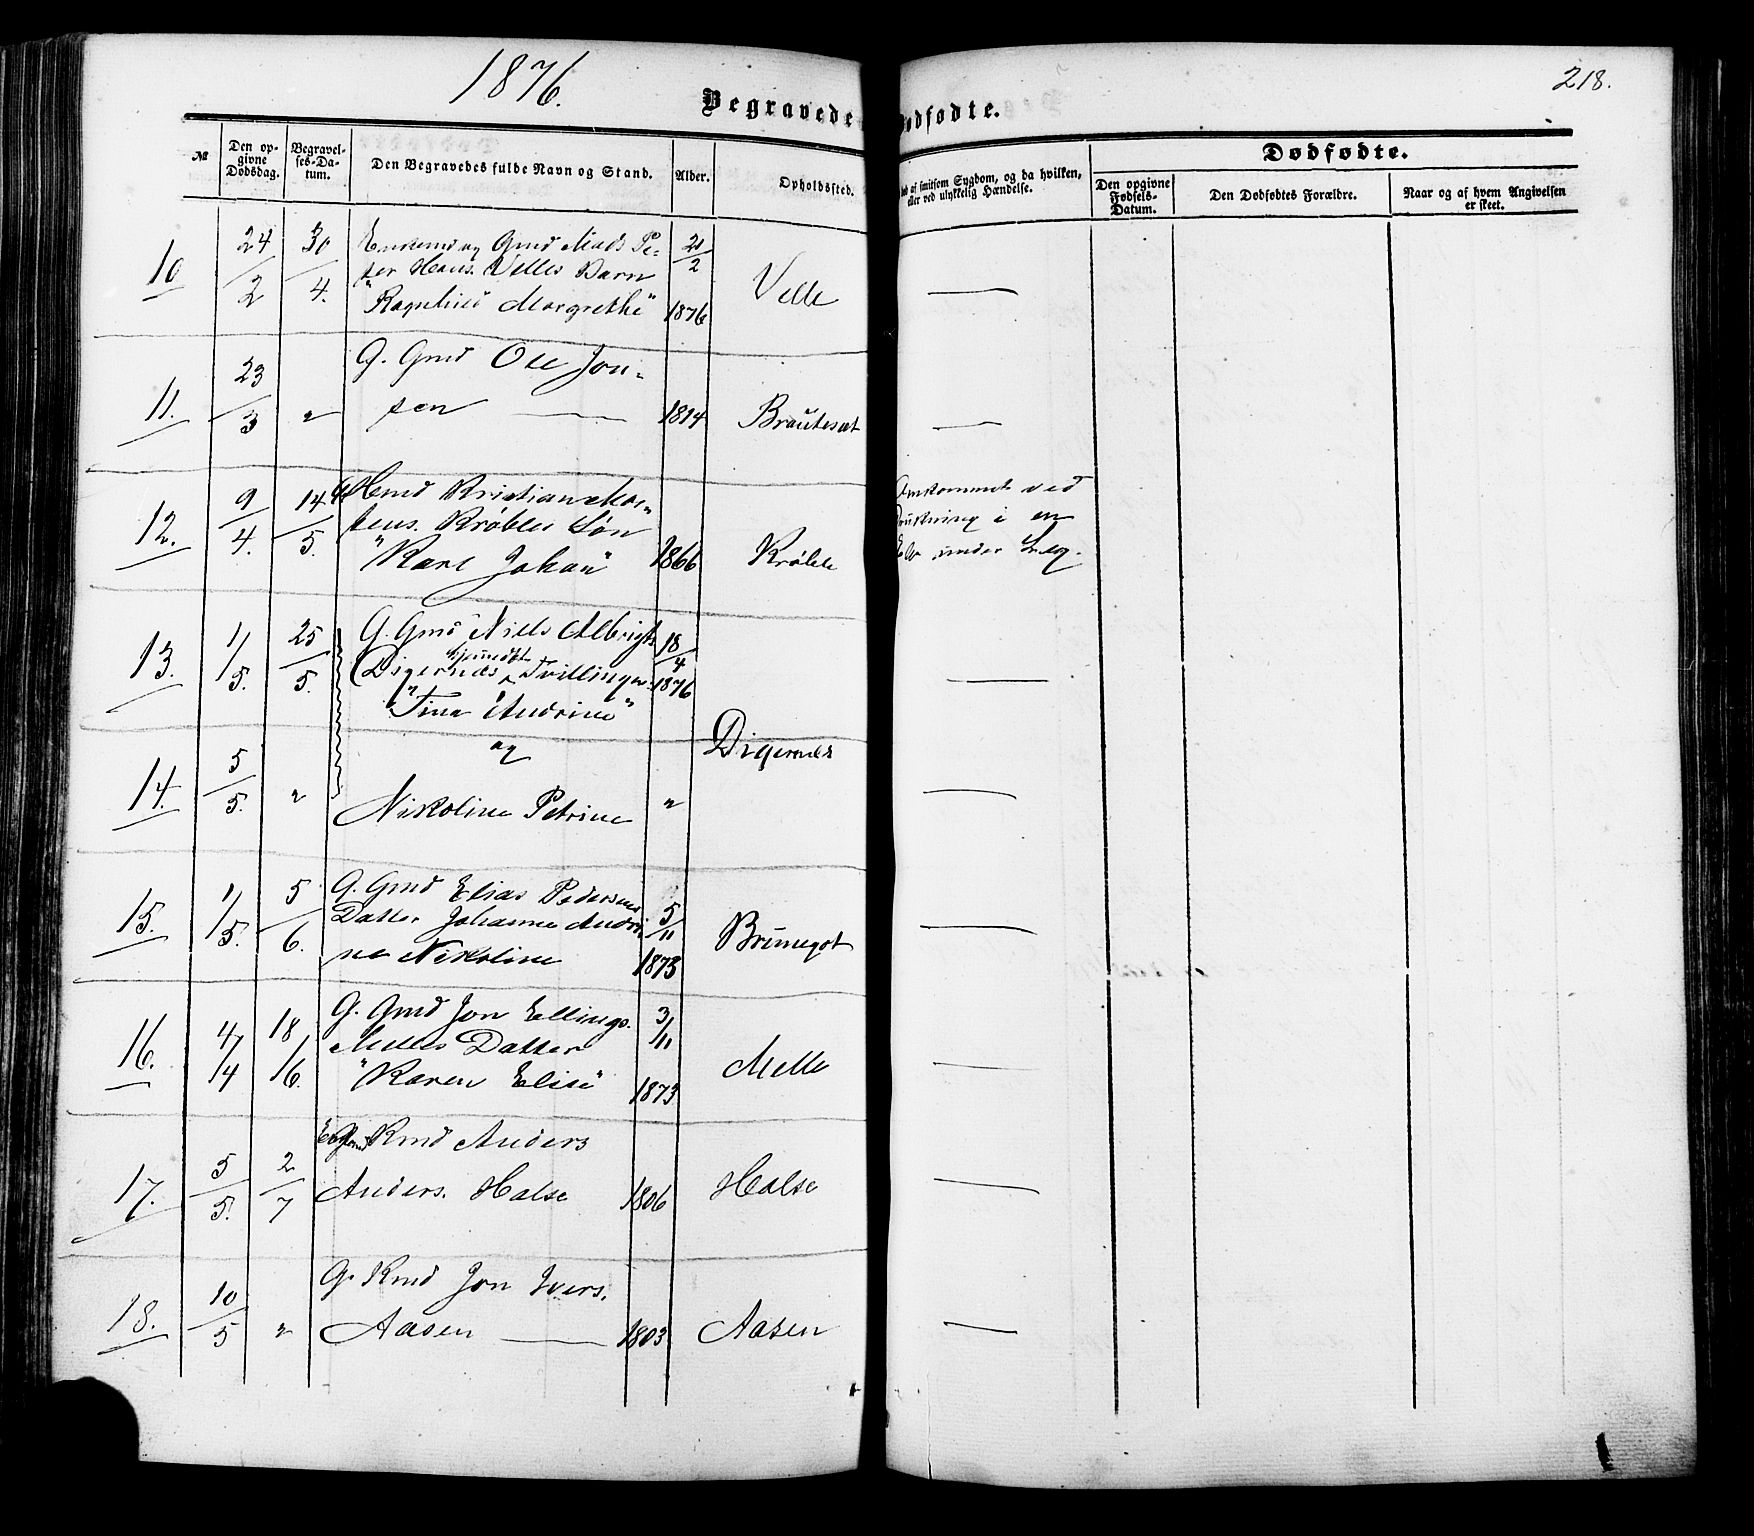 1876.
218.
Begravede
Dødfødte.
Dødfødte.
№
Den opgivne Dødsdag.
Begravelses-Datum.
Den Begravedes fulde Navn og Stand.
Alder.
Opholdssted.
af smitsom Sygdom, og da hvilken,
eller ved ulykkelig Hændelse.
Den opgivne Fødsels-Datum.
Den Dødfødtes Forældre.
Naar og af hvem Angivelsen er skeet.
10 24/2 30/4.
Enkemd og Gmd Mads Pe-
ter Hans. Velles Barn
"Ragnhild Margrethe"
21/2 1876
Velle
11. 23/3 "
G. Gmd Ole Jon-
sen
1814
Brauteset
12. 9/4. 14/5.
Kristian Mor-
tens. Krøbles Søn
"Karl Johan"
1866
Krøble
Omkommet ved
Drukning i en
Elv under Leg.
13. 1/5. 25/5.
G. Gmd Niels Albrigts
Digernæs hjemdøbt Tvillinger
"Tina Andrine"
18/4 1876
og
Digernes
14. 5/5. "
Nikoline Petrine
"
15. 1/5. 5/6.
G. Gmd Elias Pedersens
Datter Johanne Andri-
ne Nikoline
5/11 1873
Brunegot
16. 4/4 18/6.
G. Gmd Jon Ellings.
Melles Datter
"Karen Elise"
3/11 1873
Melle
17. 5/5. 2/7
Kmd Anders
Anders. Halse
1806
Halse
18. 10/5 "
G. Kmd Jon Ivers.
Aasen
1803
Aasen